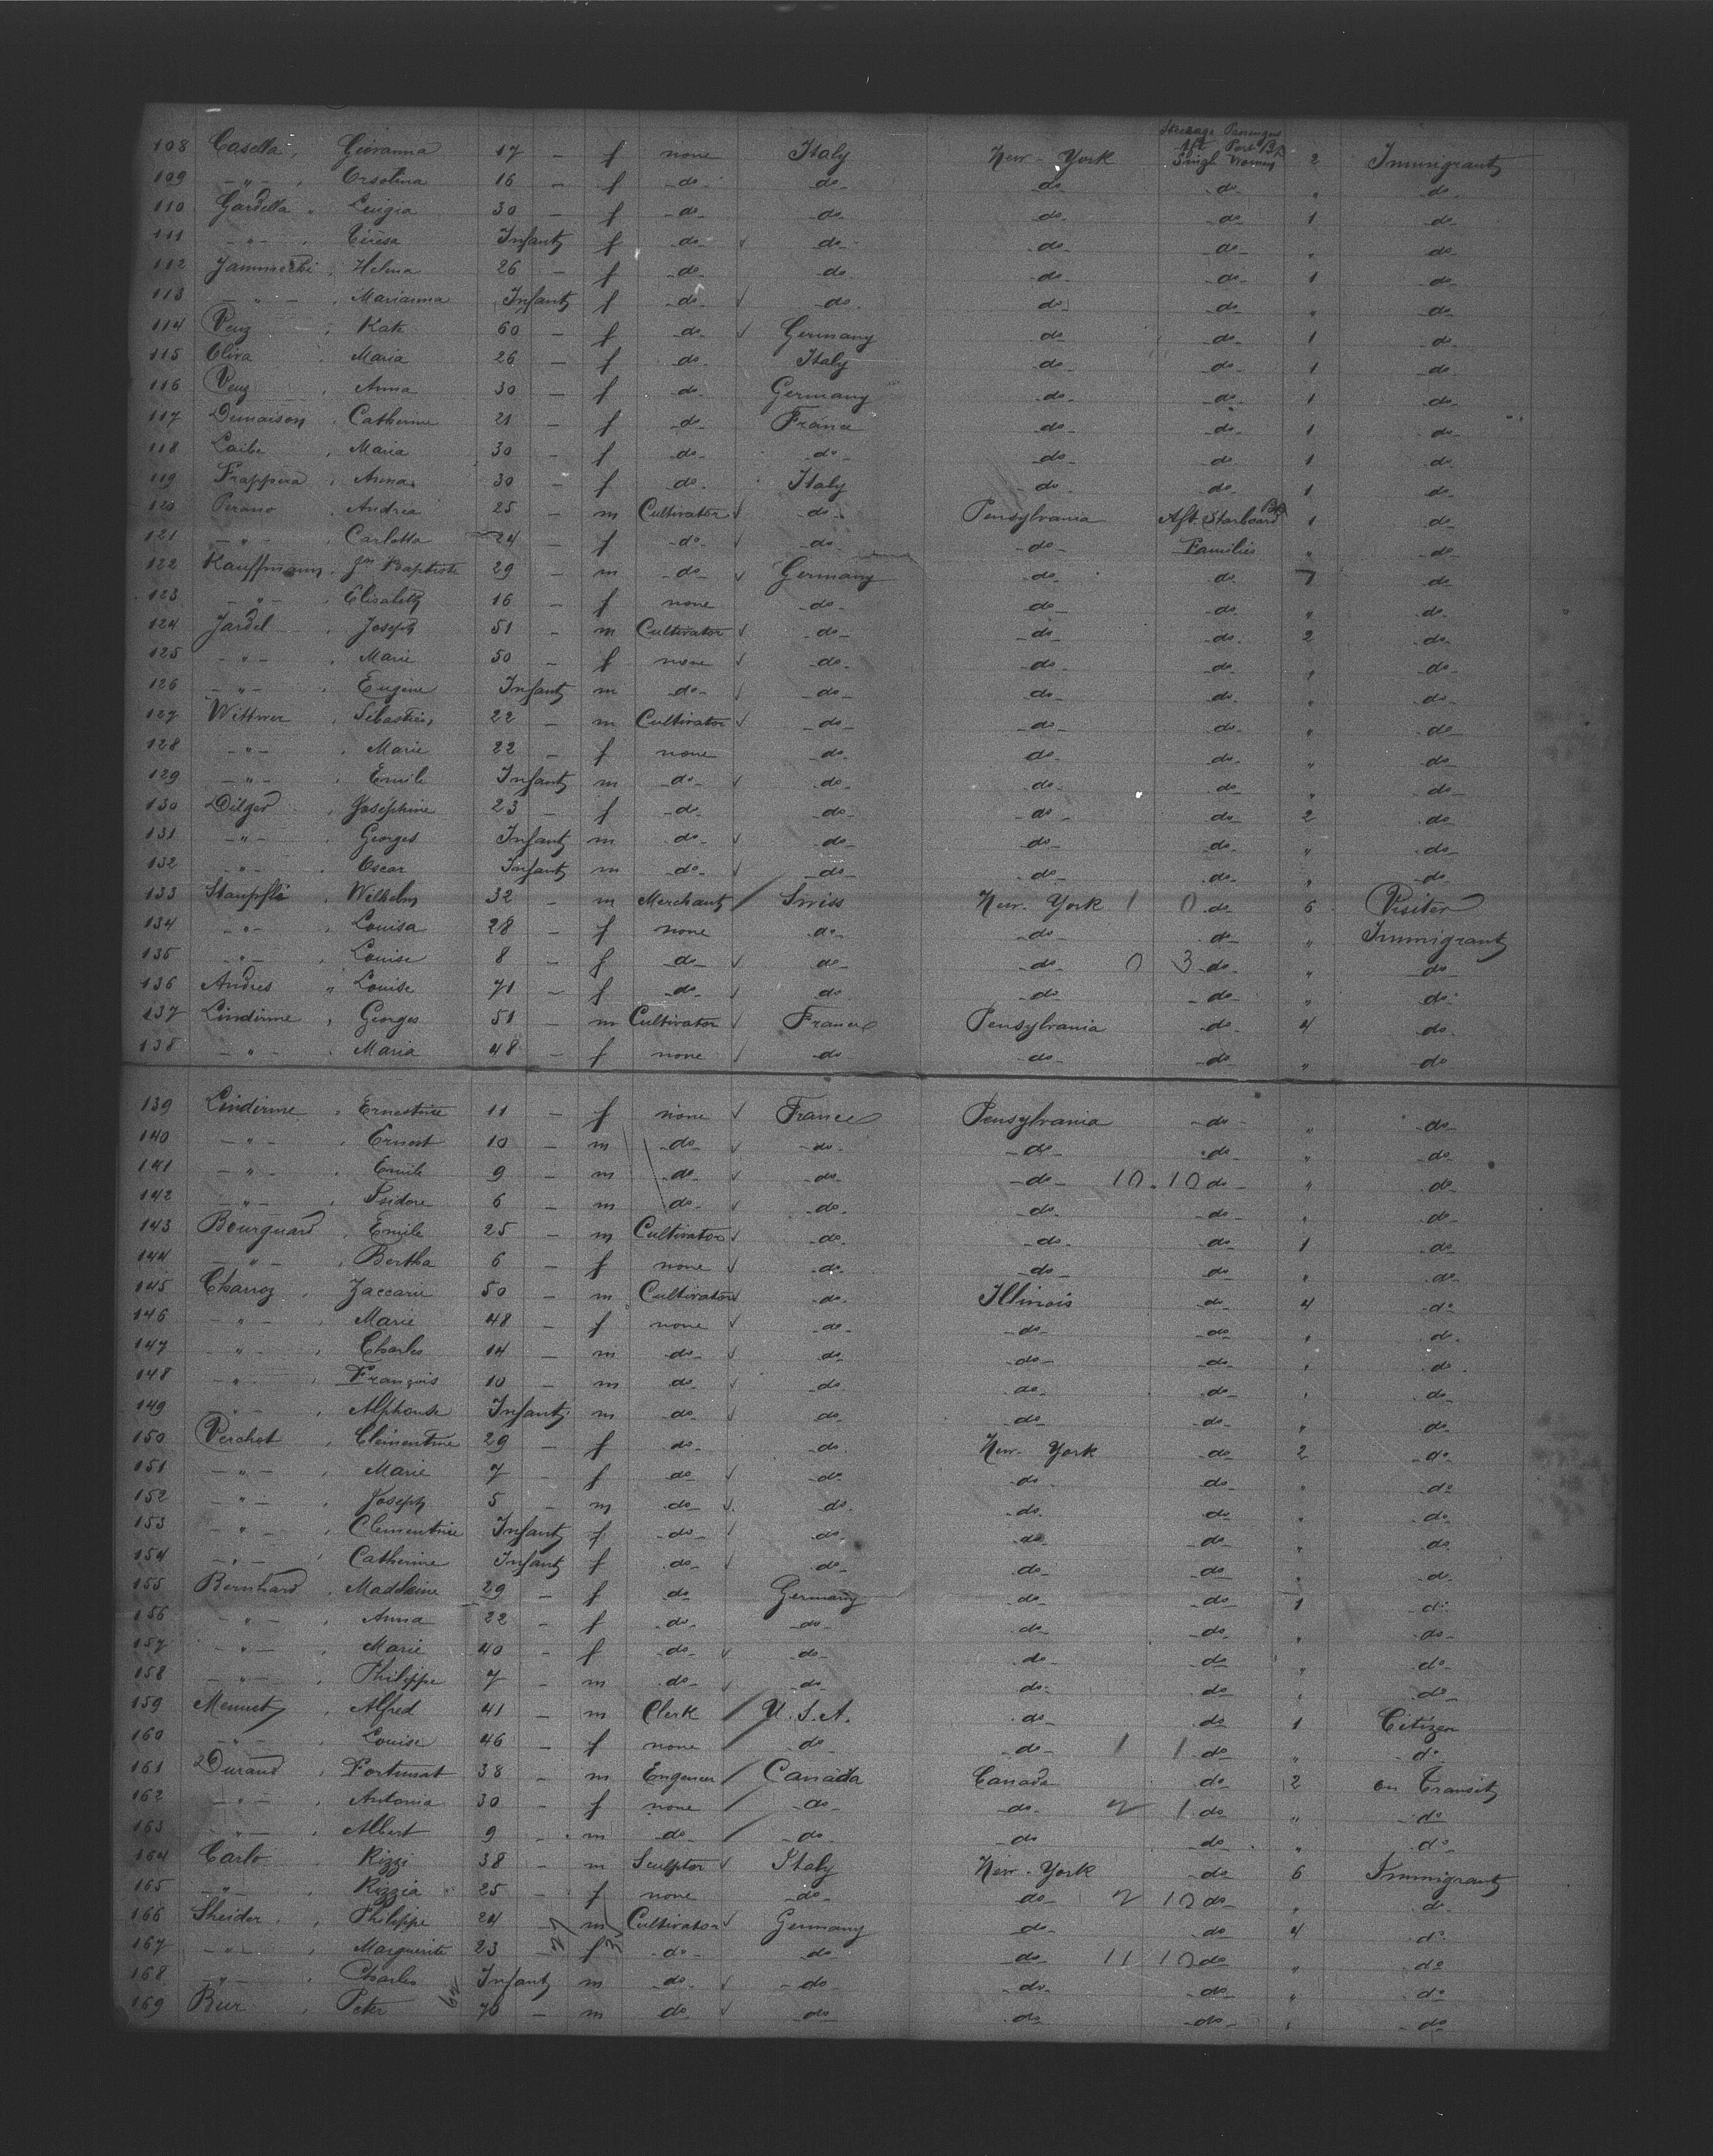 108 Casella, Giovanna 17 - f none Italy New-York Steerage Passengers Aft Port Singl Women 2 Immigrant
109 -"- , Orsolina 16 - f -do- do- do -do- " do-
110 Gardella " Luigia 30 - f -do- -do- -do- -do- 1 do
111 -"- , Teresa Infant f -do- √ do- do- do- " do-
112 , Helena 26 - f -do- -do- -do- -do- 1 do
113 -"- , Marianna Infant f -do- √ -do- do- -do- " do
114 , Kate 60 - f -do- √ Germany do -do- 1 do-
115 Oliva , Maria 26 - f do- Italy -do- -do- 1 do
116 , Anna 30 - f do- Germany -do- -do- 1 do-
117 Demaison , Catherine 21 - f -do- France -do- do- 1 do-
118 Laibe , Maria 30 - f -do- -do- -do- do 1 do
119 Frappera , Anna 30 - f do- Italy -do- do- 1 do-
120 Perano , Andrea 25 - m Cultivator √ do- Pensylvania Aft Starboard 1 do
121 -"- , Carlotta 24 - f -do- √ -do- -do- Families " -do-
122 Kauffmann, Jn Baptiste 29 - m -do- √ Germany do- do- 7 do
123 -"- , Elisabeth 16 - f none -do- do- do- " do-
124 Jardel , Joseph 51 - m Cultivator √ do- -do- -do- 2 do-
125 -"- , Marie 50 - f none √ -do- -do- -do- " -do-
126 -"- , Eugène Infant m -do- √ -do- -do- do- " -do-
127 Wittmer , Sébastien 22 - m Cultivator √ -do- -do- do- " -do-
128 -"- , Marie 22 - f none -do- do- -do- " do
129 -"- , Emile Infant m -do- √ -do- -do- do " do-
130 Dilger , Josephine 23 - f -do- -do- -do- do- 2 do
131 -"- , Georges Infant m do- √ -do- do- do- " -do-
132 -"- , Oscar Infant m -do- √ -do- -do- do- " -do-
133 , Wilhelm 32 - m Merchant / Swiss New-York 1 0 do 6 Visitor
134 -"- , Louisa 28 - f none do- -do- do- " Immigrant
135 -"- , Louise 8 - f -do- √ do- -do- 0 3 do- " do
136 Andres " Louise 71 - f -do- √ do -do- -do- " do-
137 Lindirme , Georges 51 - m Cultivator √ France Pensylvania do- 4 do-
138 -"- , Maria 48 - f none √ -do do- -do- " -do
139 Lindirme , Ernestine 11 - f none √ France Pensylvania -do- " -do-
140 -"- , Ernest 10 - m -do- √ -do- -do- do- " do-
141 -"- , Emile 9 - m -do- √ -do- -do- 10.10 do- " do-
142 -"- , Isidore 6 - m do- √ -do- -do- -do- " do
143 Bourquard , Emile 25 - m Cultivator √ -do- -do- do 1 -do
144 -"- , Bertha 6 - f none √ do- -do- do- " do-
145 Charroz , Zaccarie 50 - m Cultivator √ -do- Illinois do- 4 do
146 -"- , Marie 48 - f none √ -do- -do- -do " do-
147 -"- , Charles 14 - m -do- √ do -do- do- " do
148 -"- , François 10 - m do- √ do do- do- " do
149 -"- , Alphonse Infant m -do- √ do do do- " do
150 Verchot , Clementine 29 - f do- do- New-York do 2 -do-
151 -"- , Marie 7 - f do √ -do- do- do- " do
152 -"- , Joseph 5 - m do- √ do- do- do " do-
153 -"- , Clementine Infant f -do- √ do- do do- " do
154 -"- , Catherine Infant f do- √ do- do- do " do-
155 Bernhard , Madeleine 29 - f do Germany do- do- 1 do-
156 -"- , Anna 22 - f do- -do- do- do- " do-
157 -"- , Marie 40 - f do- √ -do- do- do " do-
158 -"- , Philippe 7 - m do- √ do- do- do " do
159 Mennet , Alfred 41 - m Clerk / U.S.A. do- do 1 Citizen
160 -"- , Louise 46 - f none / do -do- 1 1 do " d°
161 Durand , Fortunat 38 - m Engeneer / Canada Canada do- 2 on Transit
162 -"- , Antonia 30 - f none / -do- -do- 2 1 do " do
163 -"- , Albert 9 - m do- / -do- -do -do- " do-
164 Carlo , Rizzi 38 - m Sculptor √ Italy New-York -do 6 Immigrant
165 -"- , Rizzia 25 - f none -do- do- 2 10 do " d-
166 Sheider , Philippe 24 - m Cultivator √ Germany do- do 4 d°
167 -"- , Marguerite 23 - f do- do do 11 10 do " do
168 -"- , Charles Infant m do- √ -do -do- do- " do
169 Bur , Peter 70 - m do √ do do- -do- " do